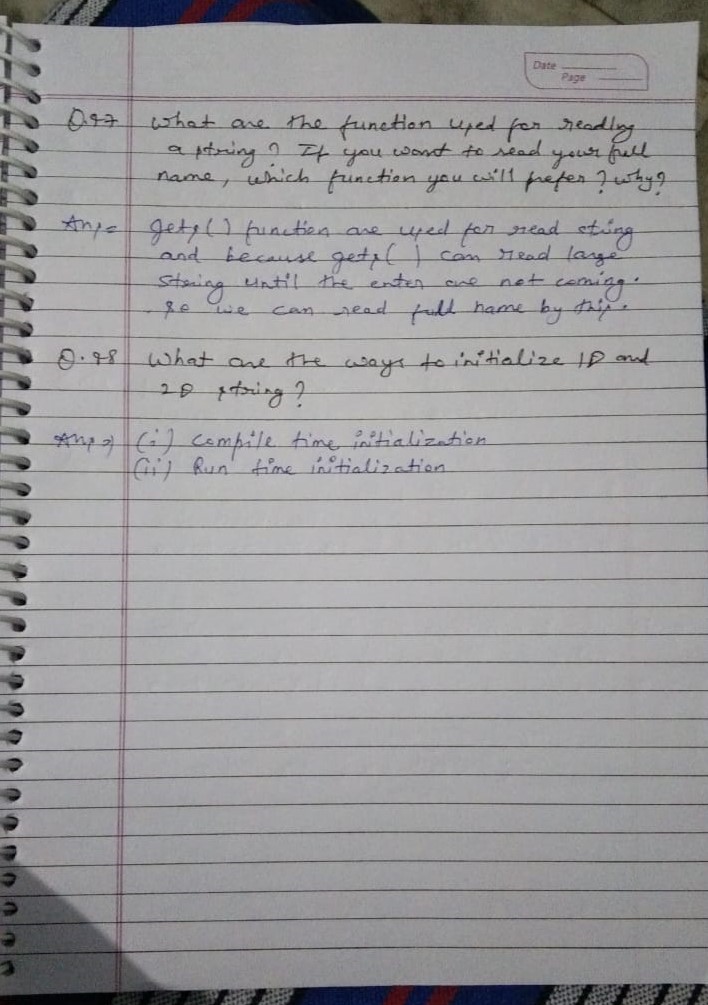 Date
Page
Q.47 What are the function used for reading
a string ? If you want to read your full
name, which function you will prefer ? why?
Ans= gets() function are used for read string
and because gets( ) can read large
string until the enter are not coming.
So we can read full name by this.
Q.48 What are the ways to initialize 1D and
2D string?
Ans⇒ (i) Compile time initialization
(ii) Run time initialization